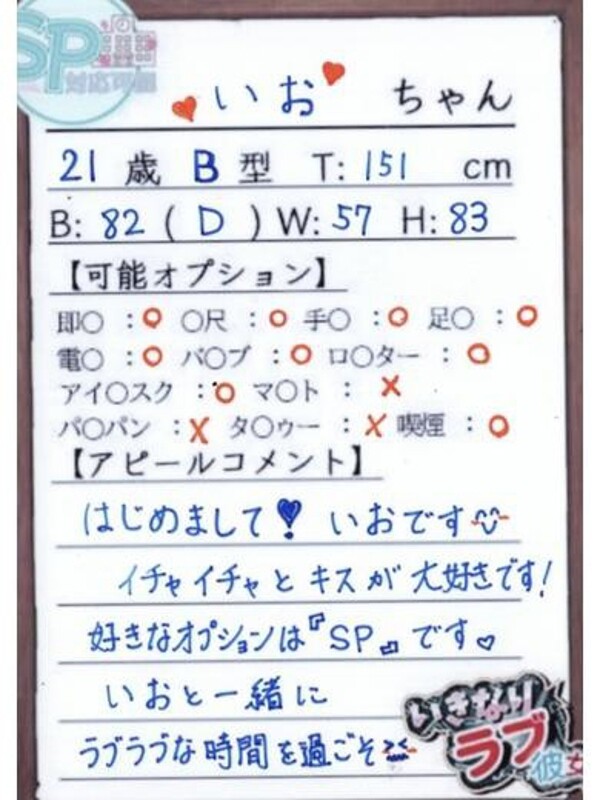 SP
対応可能
いお ちゃん
21 歳 B 型 T: 151 cm
B: 82 ( D ) W: 57 H: 83
【可能オプション】
即〇 :○ 〇尺 :○ 手〇 :○ 足〇 :○
電〇 :○ バ〇ブ :○ ロ〇ター :○
アイ〇スク :○ マ〇ト : ×
パ〇パン :× タ〇ゥー :× 喫煙 :○
【アピールコメント】
はじめまして! いおです
イチャイチャと キスが 大好きです!
好きなオプションは『SP』です♡
いおと一緒に
ラブラブな時間を過ごそ
いきなり
ラブ彼女